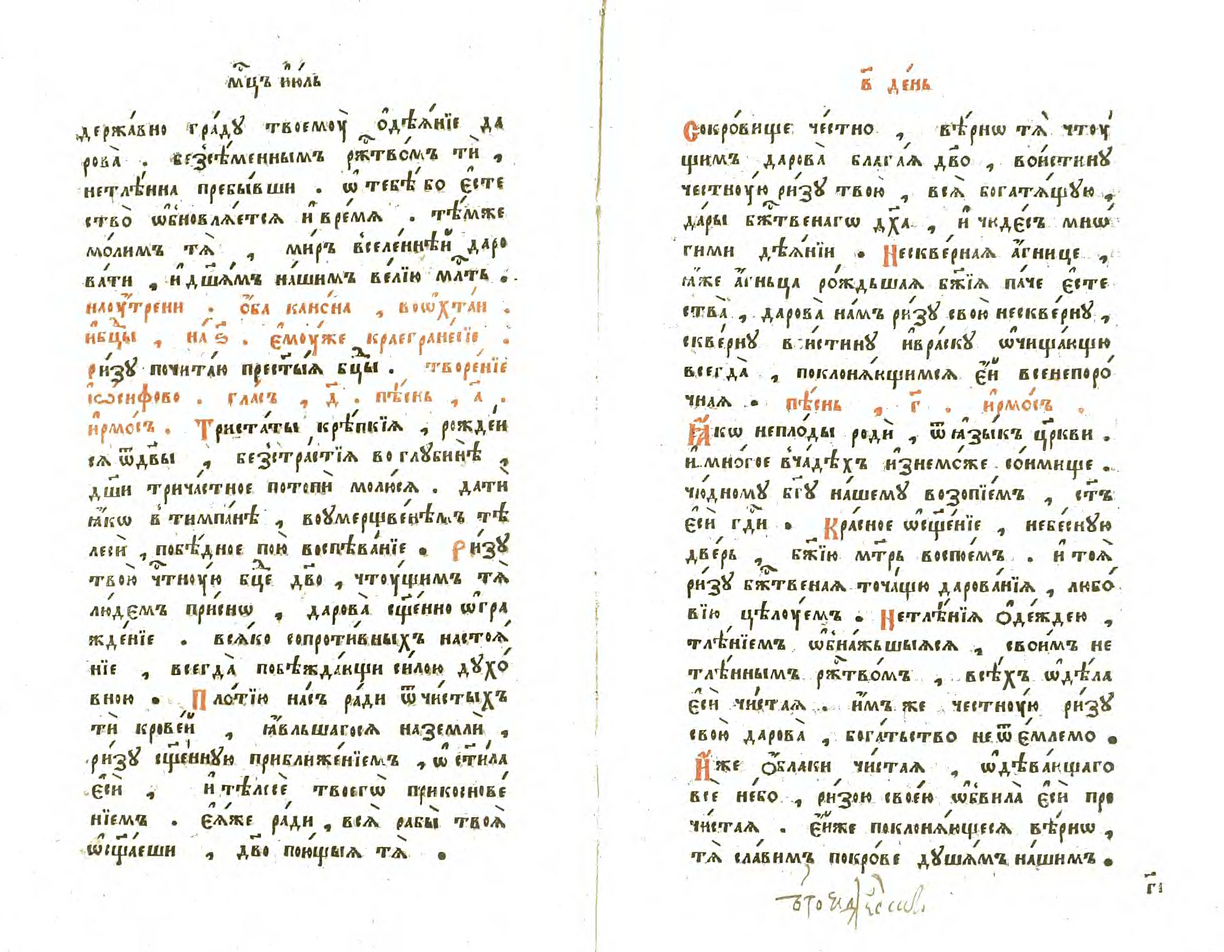 мц҃ъ и҆ю́ль
держа́вно гра́ду твоемоу̀ ѻ҆дѣѧ́нїе да
рова̀ . безсѣ́меннымъ ржⷭ҇тво́мъ тѝ ,
нетлѣ́нна пребы́вши . ѿ тебе́ бо є҆сте
ство̀ ѡ҆бновлѧ́етсѧ и҆ вре́мѧ . тѣ́мже
мо́лимъ тѧ̀ , ми́ръ вселе́ннѣй даро
ва́ти , и҆ дш҃а́мъ на́шимъ ве́лїю млⷭ҇ть .
наоу́трени . ѻ҆́ба кано́на , воѡ҆хта́и .
и҆ бц҃ы , на ѕ҃ . є҆моу́же краегране́сїе .
ри́зу почита́ю прест҃ы́ѧ бцⷣы . творе́нїе
і҆ѡ́сифово . гла́съ , д҃ . пѣ́снь , а҃ .
и҆рмо́съ . Триста́ты крѣ́пкїѧ , рожде́и
сѧ ѿ дв҃ы , безстра́стїѧ во глубинѣ̀ ,
дш҃и трича́стное потопѝ молю́сѧ . да тѝ
ꙗ҆́кѡ в тимпа́нѣ , во оу҆мерщве́нѣмъ тѣ
лесѝ , побѣ́дное пою̀ воспѣва́нїе . Ри́зу
твою̀ чтⷭ҇ноую бцⷣе дв҃о , чтоу́щимъ тѧ̀
лю́демъ при́снѡ , дарова̀ сщ҃е́нно ѡ҆гра
жде́нїе . всѧ́ко сопроти́вныхъ настоѧ́
нїе , всегда̀ побѣжда́ющи си́лою дꙋхо́
вною . Пло́тїю на́съ ра́ди ѿ чи́стыхъ
тѝ крове́й , ꙗ҆́вльшагосѧ на землѝ ,
ри́зу сщ҃е́нную приближе́нїемъ , ѡ҆ст҃и́ла
є҆сѝ , и҆ тѣлесѐ твоегѡ̀ прикоснове́
нїемъ . є҆ѧ́же ра́ди , всѧ̀ рабы̀ твоѧ̀
ѡ҆сщ҃а́еши , дв҃о пою́щыѧ тѧ̀ .
в҃ де́нь
Сокро́вище че́стно , вѣ́рнѡ тѧ̀ чтоу́
щимъ дарова̀ блага́ѧ дв҃о , вои́стинꙋ
честноу́ю ри́зу твою̀ , всѧ̀ богатѧ́щую ,
да́ры бжⷭ҇твенагѡ дх҃а , и҆ чюде́съ мнѡ́
гими дѣѧ́нїи . Нескве́рнаѧ а҆́гнице ,
ꙗ҆́же а҆́гньца ро́ждьшаѧ бж҃їѧ па́че є҆сте
ства̀ , дарова̀ на́мъ ри́зу свою̀ нескве́рну ,
скве́рну в и҆́стину и҆ вра́ску ѡ҆чища́ющю
всегда̀ , поклонѧ́ющимсѧ є҆́й всенепоро́
чнаѧ . пѣ́снь , г҃ . и҆рмо́съ .
Ꙗ҆́кѡ непло́ды родѝ , ѿ ꙗ҆зы́къ цр҃кви .
и҆ мно́гое в ча́дѣхъ и҆знемо́же со́нмище .
чю́дному бг҃у на́шему возопїе́мъ , ст҃ъ
є҆сѝ гдⷭ҇и . Кра́сное ѡ҆сщ҃е́нїе , небе́сную
две́рь , бж҃їю мт҃рь воспое́мъ . и҆ тоѧ̀
ри́зу бжⷭ҇твенаѧ точа́щю дарова́нїѧ , любо́
вїю цѣлоу́емъ . Нетлѣ́нїѧ ѻ҆де́ждею ,
тлѣ́нїемъ ѡ҆бнажьшыѧсѧ , свои́мъ не
тлѣ́ннымъ ржⷭ҇тво́мъ , всѣ́хъ ѡ҆дѣ́ла
є҆сѝ чи́стаѧ . и҆́мъ же честноу́ю ри́зу
свою̀ дарова̀ , бога́тьство не ѿе́млемо .
И҆́же ѻ҆́блаки чи́стаѧ , ѡ҆дѣва́ющаго
всѐ не́бо , ри́зою свое́ю ѡ҆бвила̀ є҆сѝ пре
чи́стаѧ . є҆́йже поклонѧ́ющесѧ вѣ́рнѡ ,
тѧ̀ сла́вимъ покро́ве дꙋша́мъ на́шимъ .
г҃і